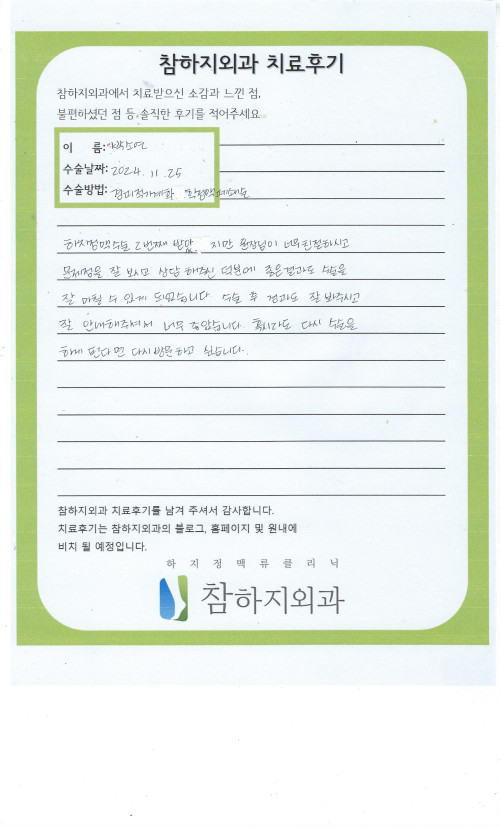 참하지외과 치료후기
참하지외과에서 치료받으신 소감과 느낀 점,
불편하셨던 점 등 솔직한 후기를 적어주세요
이 름: 박소연
수술날짜: 2024. 11. 25
수술방법: 정맥
하지정맥수술 2번째 받았 지만 원장님이 너무 친절하시고
문제점을 잘 보시고 상담 해주신 덕분에 좋은결과로 수술을
잘 마칠 수 있게 되었습니다. 수술 후 경과도 잘 봐주시고
잘 안내해주셔서 너무 좋았습니다. 혹시라도 다시 수술을
하게 된다면 다시 방문하고 싶습니다.
참하지외과 치료후기를 남겨 주셔서 감사합니다.
치료후기는 참하지외과의 블로그, 홈페이지 및 원내에
비치 될 예정입니다.
하지정맥류클리닉
참하지외과